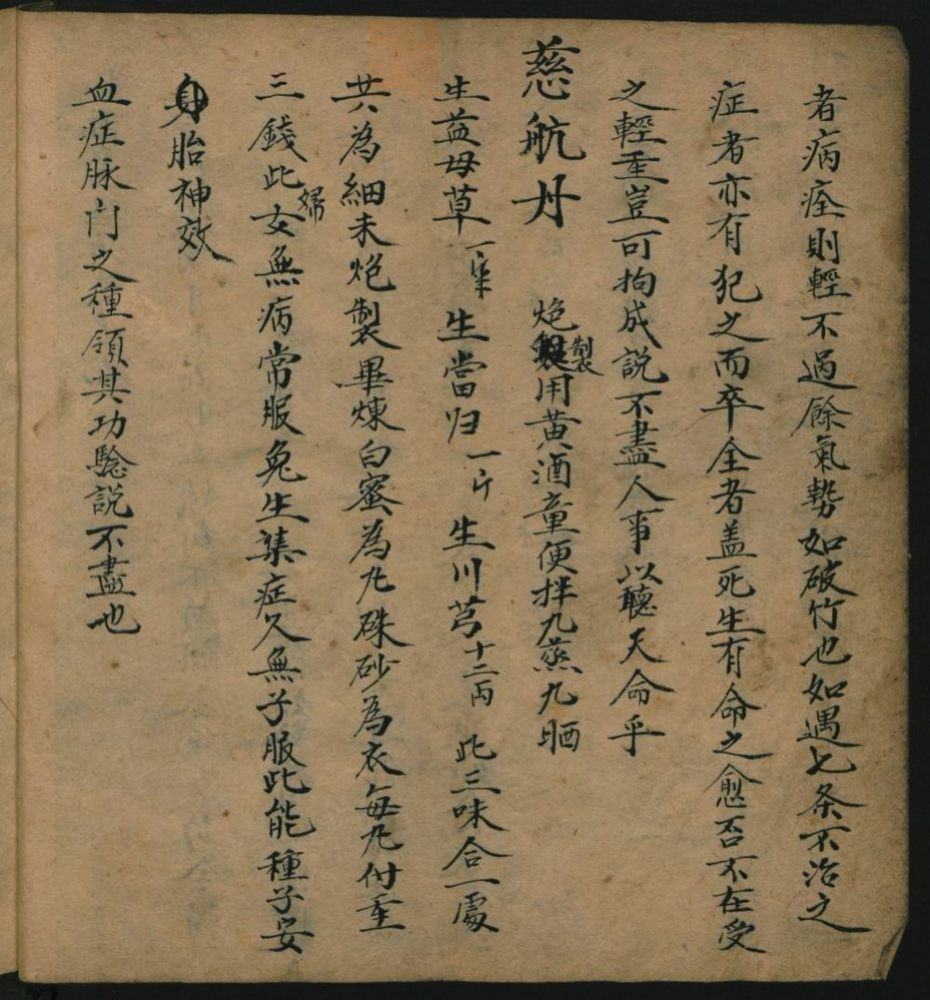 者病痊則輕不過餘氣勢如破竹也如遇七条不治之
症者亦有犯之而卒全者盖死生有命之愈否不在受
之輕重豈可拘成説不盡人事以聽天命乎
慈航丹 炮製用黃酒童便拌九蒸九晒
生益母草 生當归一斤 生川芎十二两 此三味合一處
共為細末炮製畢煉白蜜為丸硃砂為衣每丸付重
三錢此婦女無病常服免生集症久無子服此能種子安
身胎神效
血症脉門之種領其功驗説不盡也